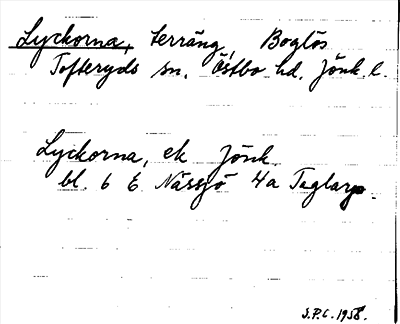 Lyckorna, terräng, Boglös
Tofteryds sn. Östbo hd. Jönk. l.
Lyckorna, ek Jönk.
bl. 6 E Nässjö 4a Teglarp.
S.P.C. 1958.